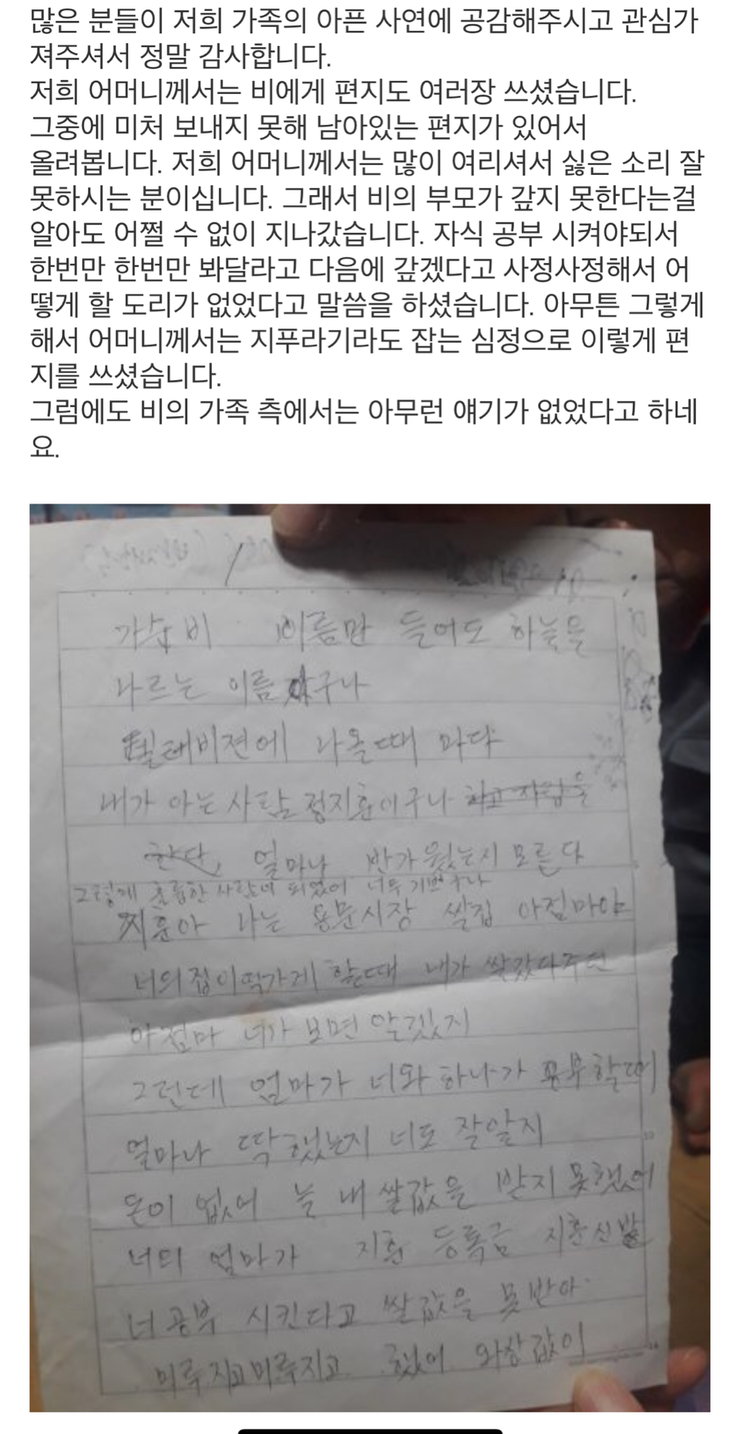 많은 분들이 저희 가족의 아픈 사연에 공감해주시고 관심가
져주셔서 정말 감사합니다.
저희 어머니께서는 비에게 편지도 여러장 쓰셨습니다.
그중에 미처 보내지 못해 남아있는 편지가 있어서
올려봅니다. 저희 어머니께서는 많이 여리셔서 싫은 소리 잘
못하시는 분이십니다. 그래서 비의 부모가 갚지 못한다는걸
알아도 어쩔 수 없이 지나갔습니다. 자식 공부 시켜야되서
한번만 한번만 봐달라고 다음에 갚겠다고 사정사정해서 어
떻게 할 도리가 없었다고 말씀을 하셨습니다. 아무튼 그렇게
해서 어머니께서는 지푸라기라도 잡는 심정으로 이렇게 편
지를 쓰셨습니다.
그럼에도 비의 가족 측에서는 아무런 얘기가 없었다고 하네
요.
가수 비 이름만 들어도 하늘을
나르는 이름
텔레비젼에 나올때 마다
내가 아는 사람 정지훈이구나
얼마나 반가웠는지 모른다
그렇게 훌륭한 사람이 되었어 너무 기쁘구나
지훈아 나는 용문시장 쌀집 아점마야
너의집이떡가게 할때 내가 쌀갔다주던
아점마 너가 보면 알겠지
그런데 엄마가 너와 하나가 공부할때
얼마나 딱했는지 너도 잘알지
돈이 없어 늘 내 쌀값을 받지 못했어
너의 엄마가 지훈 등록금 지훈신발
너 공부 시킨다고 쌀값을 못받아
미루지고미루지고 했어 외상값이